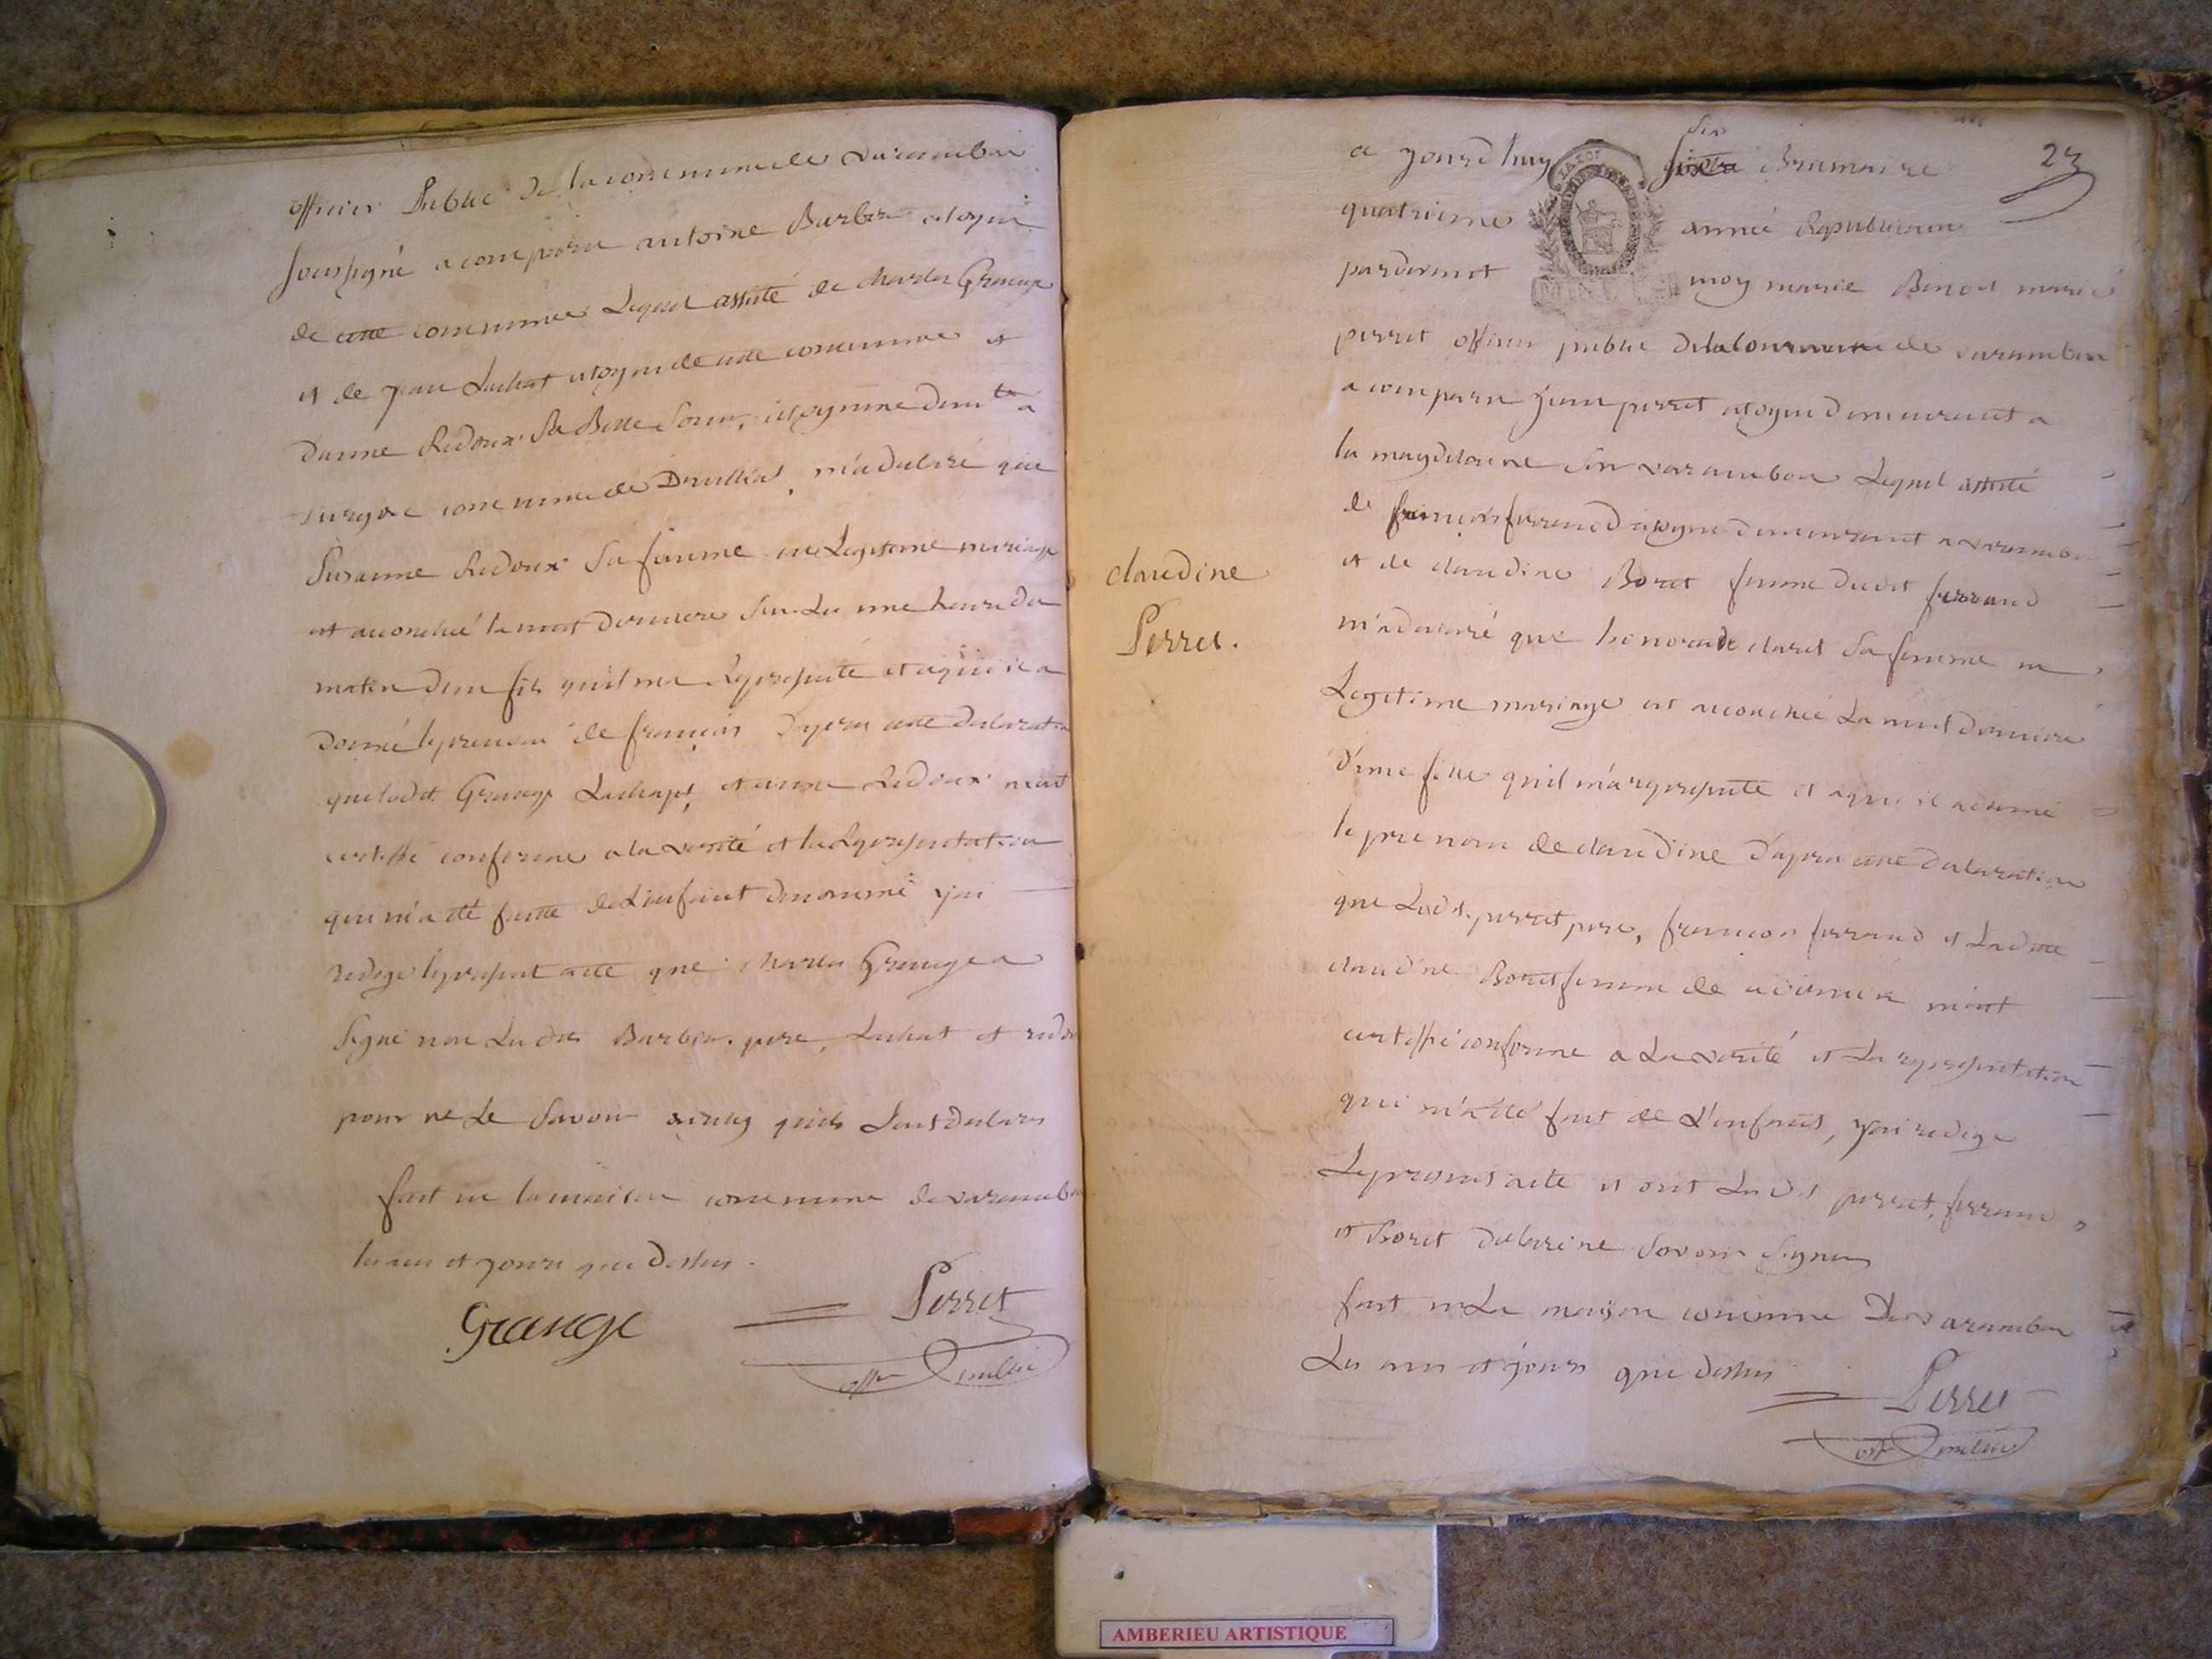 officier Public de la commune de varambon
soussigné a comparu antoine Barbier citoyen
de cette commune Lequel assisté de charles Grange
et de jean Luchat citoyen de cette commune et
danne Ridoux Sa Belle Soeur, citoyenne demte a
commune de Druillat, m'a déclaré que
Suzanne Ridoux Sa femme en Legitime mariage
est accouchée la nuit derniere Sur Les une heure du
matin d'un fils qu'il ma Représenté et a qui il a
donné le prenom de françois D'après cette déclaration
que lesdit Grange et anne Ridoux m'ont
certiffié conforme a la verité et la Représentation
qui m'a été faitte de L'enfant denommé j'ai
redigé le présent acte que charles Grange a
Signé non Les dits Barbier père, Luchat et
pour ne Le Savoir quils L'ont déclaré
fait en la maison commune de varambon
les an et jours que dessus.
Grange Perret
offer public
23
a jourd'huy Six Brumaire
quatrieme année Républicaine
pardevant moy marie Benoit marie
perret officier public de la commune de varambon
a comparu jean perret citoyen demeurant a
la magdelaine Sur varambon Lequel assisté
de françois ferrand citoyen demeurant a varambon
et de claudine Boret femme dudit ferrand
m'a déclaré que honorade claret Sa femme en
Legitime mariage est accouchée La nuit derniere
d'une fille qu'il m'a représenté et a qui il a donné
le prenom de claudine D'après cette déclaration
que Lesdt. perret pere, françois ferrand et Laditte
claudine Boret femme de ce dernier m'ont
certiffié conforme a La verité et La représentation
qui m'a été fait de L'enfant, j'ai redigé
Le présent acte et ont Lesdit perret, ferrand
et Boret déclaré ne Savoir Signer
fait en La maison commune De varambon
Les an et jours que dessus
Perret
offer public
claudine
Perret.
AMBERIEU ARTISTIQUE